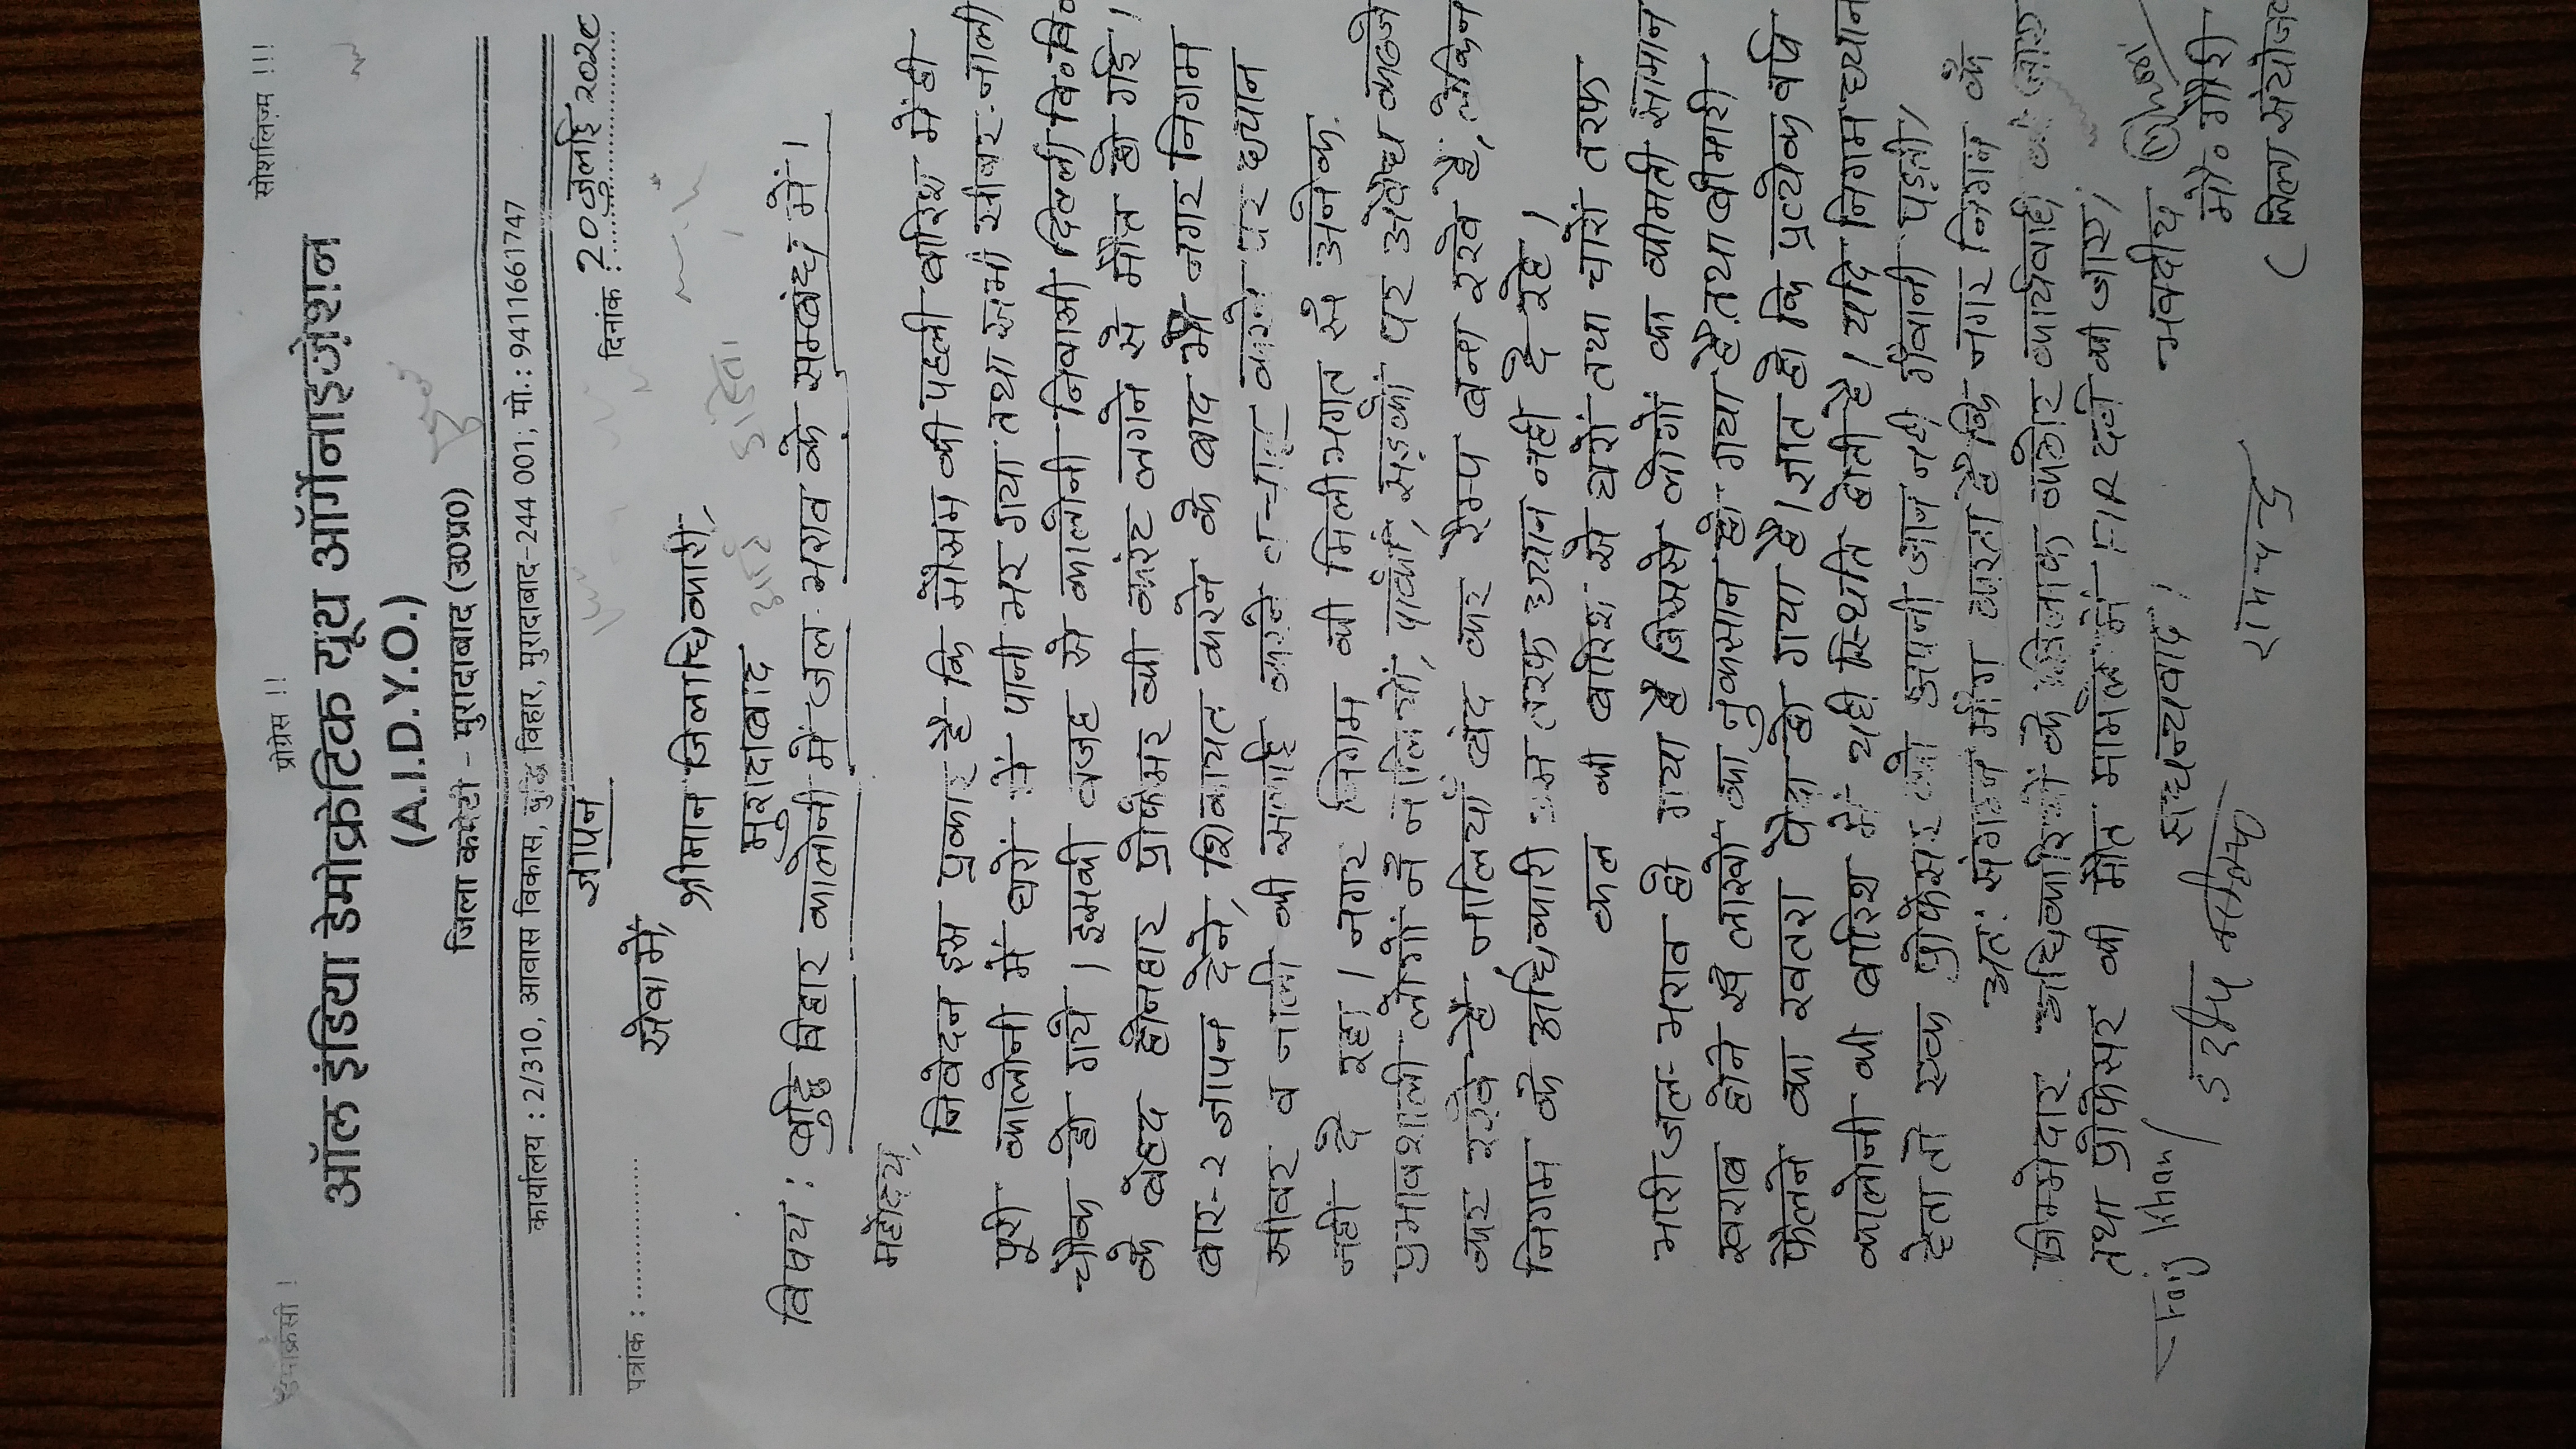 डेमोक्रेसी ! प्रोग्रेस !! सोशलिज़्म !!!
ऑल इंडिया डेमोक्रेटिक यूथ ऑर्गेनाइज़ेशन
(A.I.D.Y.O.)
जिला कमेटी - मुरादाबाद (उ0प्र0)
कार्यालय : 2/310, आवास विकास, बुद्धि विहार, मुरादाबाद-244 001, मो.: 9411661747
ज्ञापन
पत्रांक : ................. दिनांक : 20 जुलाई
सेवा में,
श्रीमान जिलाधिकारी,
मुरादाबाद
विषय : बुद्धि विहार कालोनी में जल-भराव के सम्बंध में।
महोदय,
निवेदन इस प्रकार है कि मौसम की पहली बारिश में ही
पूरी कालोनी में घरों में पानी भर गया तथा सभी सीवर-नाली
चौक हो गये। इसकी वजह से कालोनी निवासी दिल्ली वि०वि०
के बेहद होनहार प्रोफेसर की करंट लगने से मौत हो गई।
बार-२ ज्ञापन देने, शिकायत करने के बाद भी नगर निगम
सीवर व नाली की सफाई करने व चालू करने पर ध्यान
नहीं दे रहा। नगर निगम की मिलीभगत से अनेक
प्रभावशाली लोगों ने नालियों, पार्कों, सड़कों पर अवैध कब्जे
कर रखे हैं, नालियाँ बंद कर रैम्प बना रखे हैं, लेकिन
निगम के अधिकारी इस तरफ ध्यान नहीं दे रहे।
कल की बारिश से घरों तथा चारों तरफ
भारी जल-भराव हो गया है जिससे लोगों का कीमती सामान
खराब होने से लाखों का नुकसान हो गया है तथा बीमारी
फैलने का खतरा पैदा हो गया है। ज्ञात हो कि प्रत्येक वर्ष
कालोनी की बारिश में यही स्थिति होती है। यदि निगम ध्यान
देता तो एक प्रोफेसर को अपनी जान नहीं गँवानी पड़ती।
अतः संगठन माँग करता है कि नगर निगम के
जिम्मेदार अधिकारियों के खिलाफ कठोर कार्यवाही की जाए
तथा प्रोफेसर की मौत मामले में FIR दर्ज की जाए।
सधन्यवाद। भवदीय
Faiz Khan
रामचन्द्र
मौ० गौरी
(जिला संयोजक